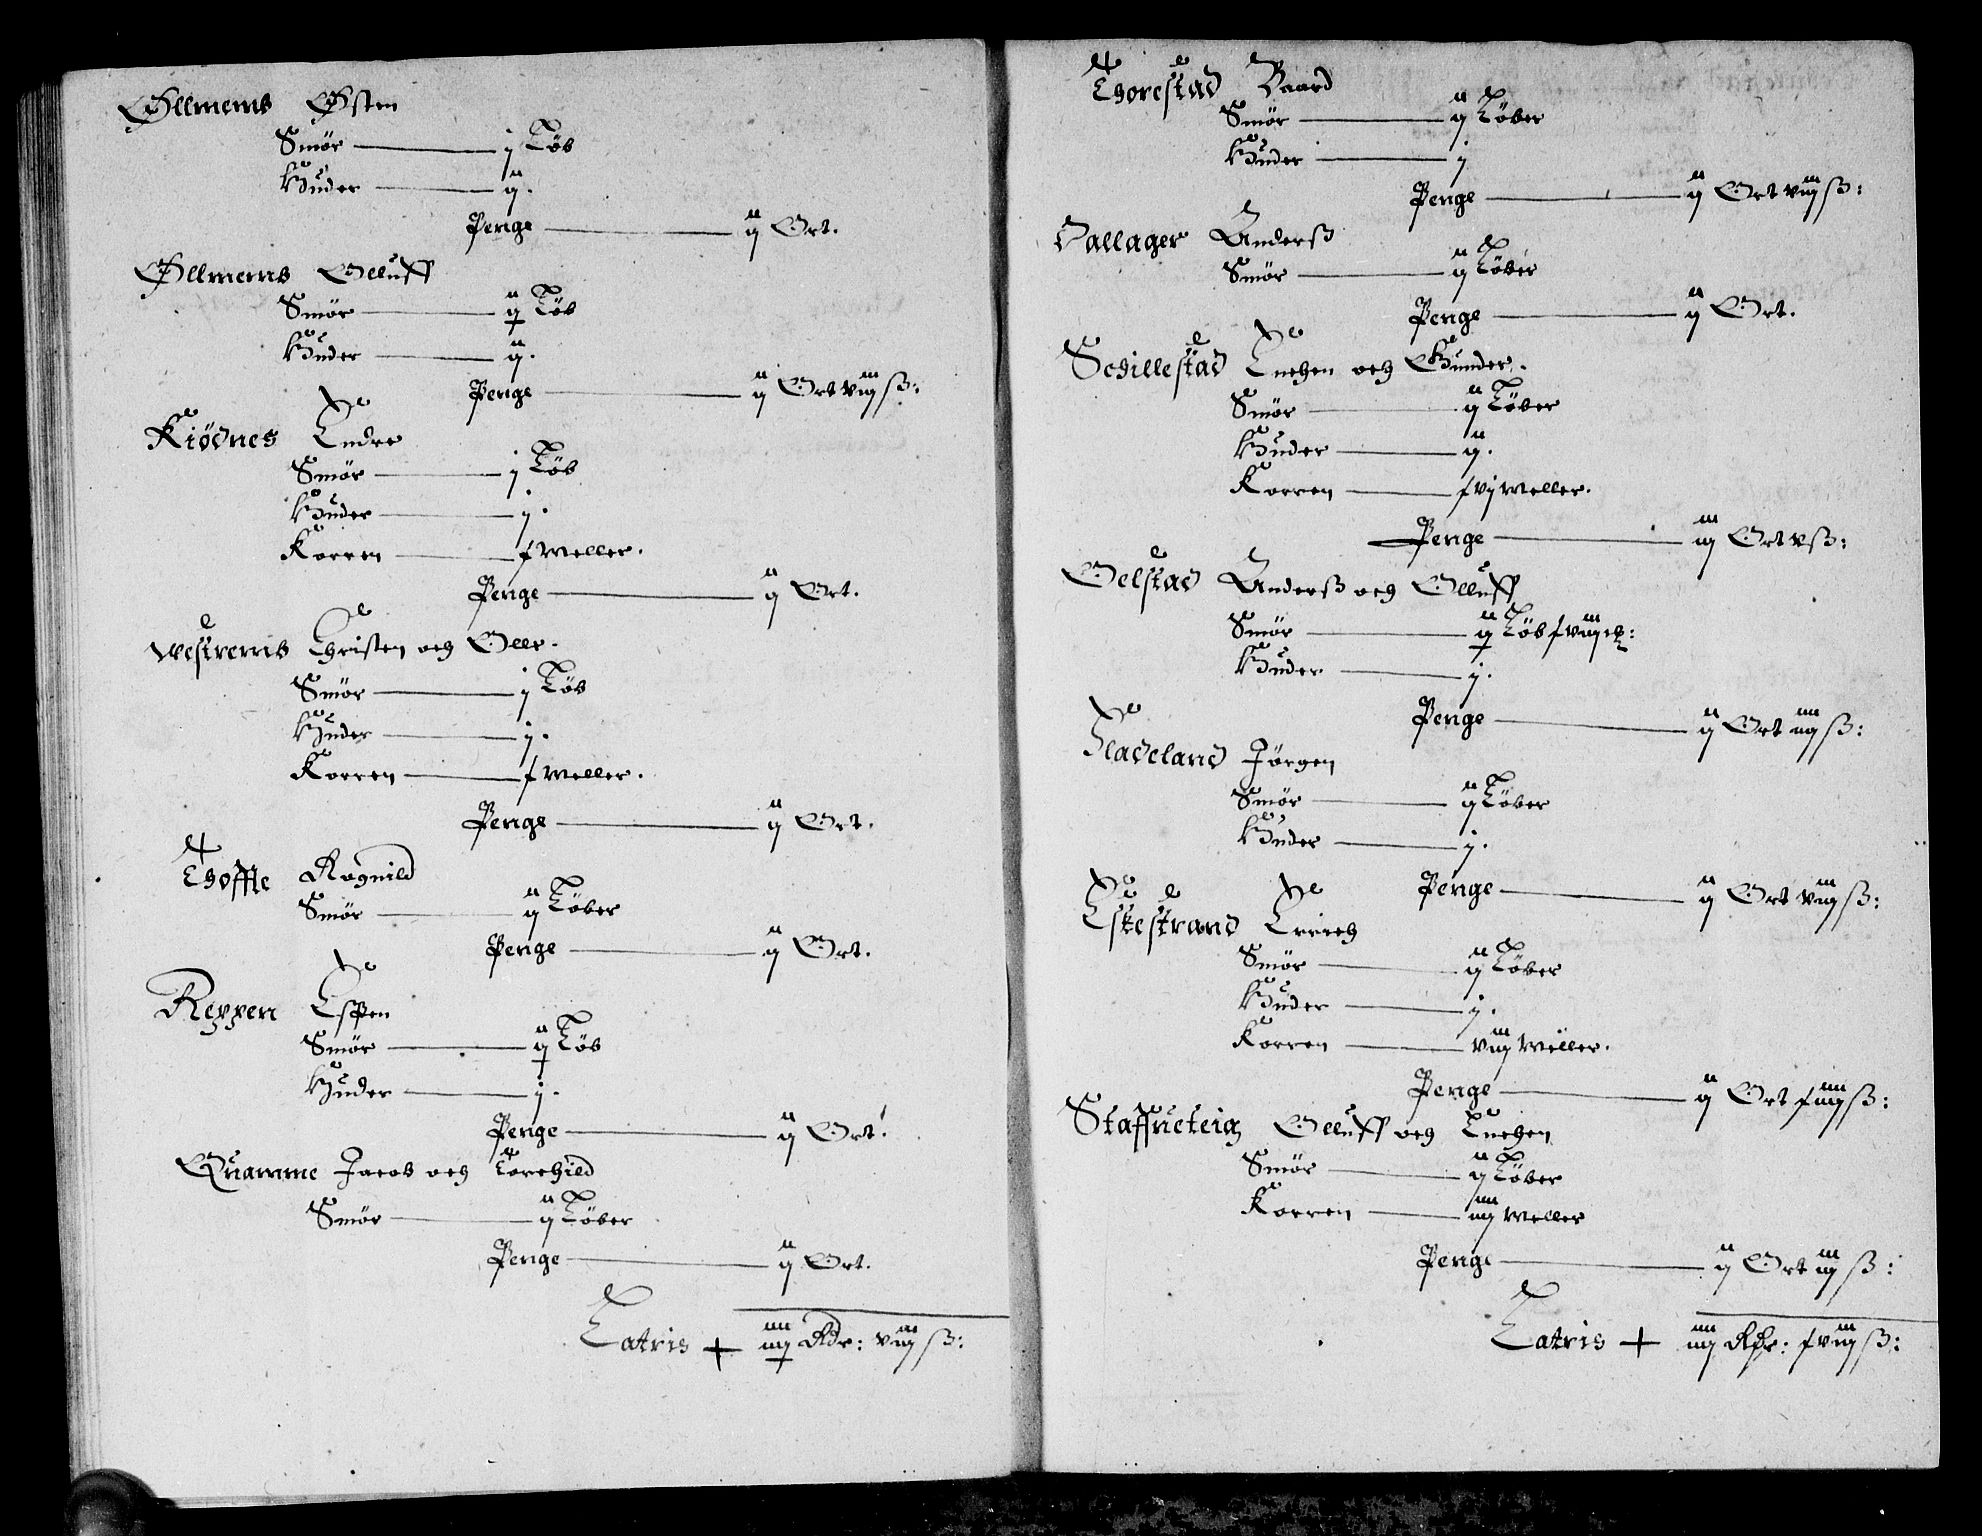 Øllmems Østen
Smör — j Löb
Huder — ij.
Penge — ij Ort.
Øllmems Olluff
Smör — ij Löb
Huder — ij.
Penge — ij Ort viij ß:
Kiödnes Endre
Smör — j Löb
Huder — j.
Korren — x Meller.
Penge — ij Ort.
Westrems Christen och Oller.
Smör — j Löb
Huder — j.
Korren — x Meller.
Penge — ij Ort.
Thoffte Rognild
Smör — ij Löber
Penge — ij Ort.
Reppen Espen
Smör — ij Löb
Huder — j.
Penge — ij Ort.
Quamme Jacob och Torchild
Smör — ij Löber
Penge — ij Ort.
Latris + iiij Rdr: viij ß:
Thorestad Baard
Smör — ij Löber
Huder — j
Penge — ij Ort viij ß:
Dallager Anderß
Smör — ij Löber
Penge — ij Ort.
Schillestad Luchen och Gunder.
Smör — ij Löber
Huder — ij.
Korren — xvj Meller.
Penge — iij Ort v ß:
Oelstad Anderß och Olluff
Smör — ij Löb xviij
Huder — j.
Penge — ij Ort iiij ß:
Fladeland Jörgen
Smör — ij Löber
Huder — j.
Penge — ij Ort viij ß:
Eskestrand Errich
Smör — ij Löber
Huder — j.
Korren — viij Meller.
Penge — ij Ort xiiij ß:
Staffneteig Olluff och Luchen
Smör — ij Löber
Korren — iiij Meller
Penge — ij Ort iij ß:
Latris + iiij Rdr: xviij ß: